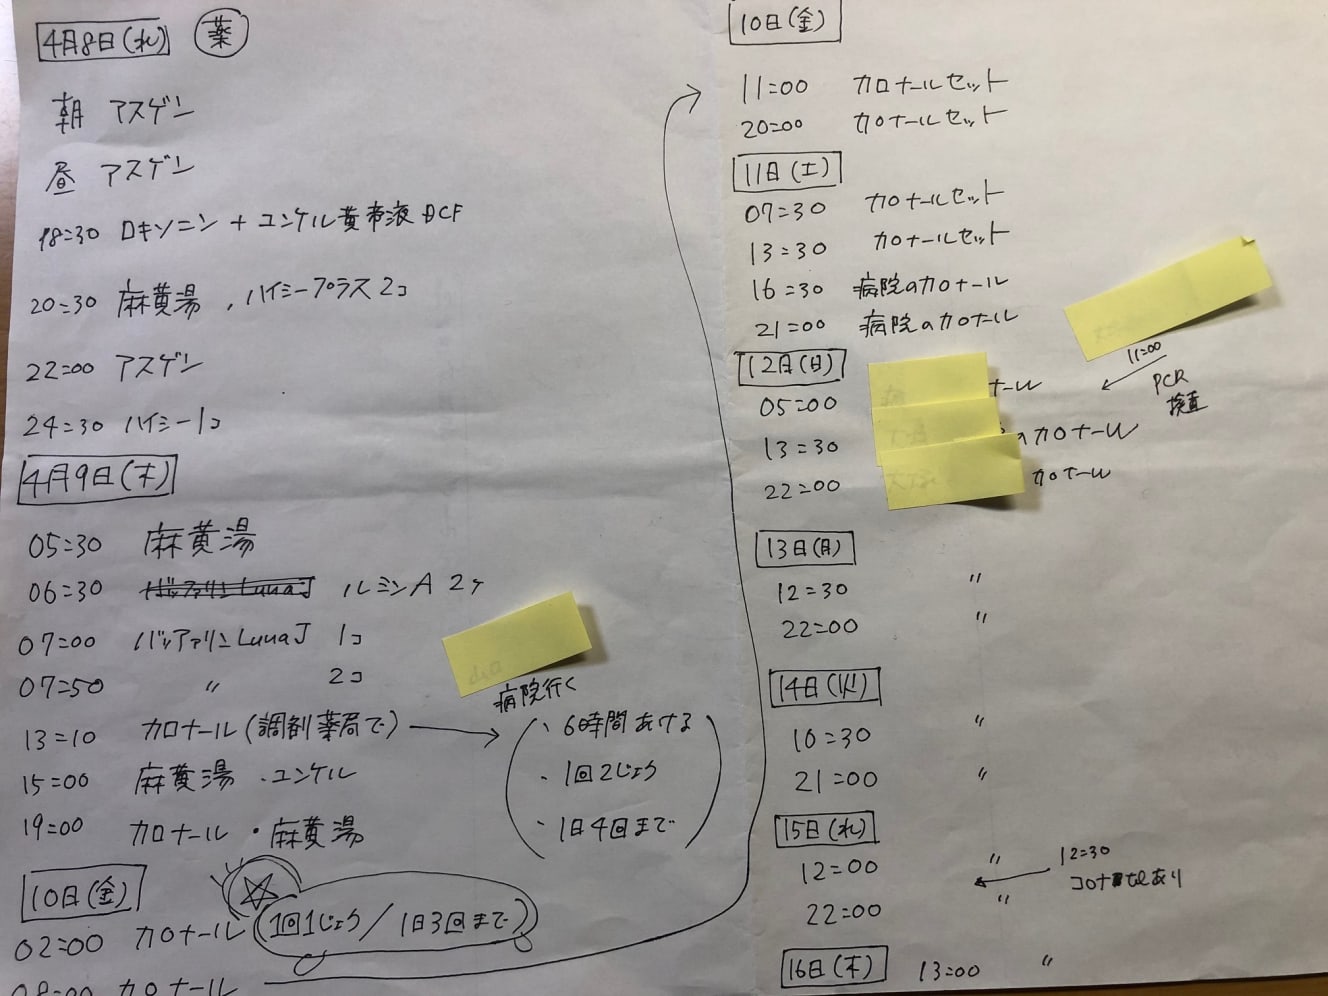 4月8日(水) 薬
朝 アスゲン
昼 アスゲン
18:30 ロキソニン + ユンケル黄帝液DCF
20:30 麻黄湯、ハイシープラス2コ
22:00 アスゲン
24:30 ハイシー1コ
4月9日(木)
05:30 麻黄湯
06:30 バッファリンLunaJ ルミンA 2ケ
07:00 バッファリンLunaJ 1コ
07:50 〃 2コ
病院行く
13:10 カロナール(調剤薬局で)
・6時間あける
・1回2じょう
・1日4回まで
15:00 麻黄湯・ユンケル
19:00 カロナール・麻黄湯
10日(金)
02:00 カロナール (1回1じょう/1日3回まで)
08:00 カロナール
10日(金)
11:00 カロナールセット
20:00 カロナールセット
11日(土)
07:30 カロナールセット
13:30 カロナールセット
16:30 病院のカロナール
21:00 病院のカロナール
12日(日)
11:00
PCR
検査
05:00 ナール
13:30 のカロナール
22:00 カロナール
13日(月)
12:30 〃
22:00 〃
14日(火)
10:30 〃
21:00 〃
15日(水)
12:00 〃
12:30
コロナ
あり
22:00 〃
16日(木) 13:00 〃